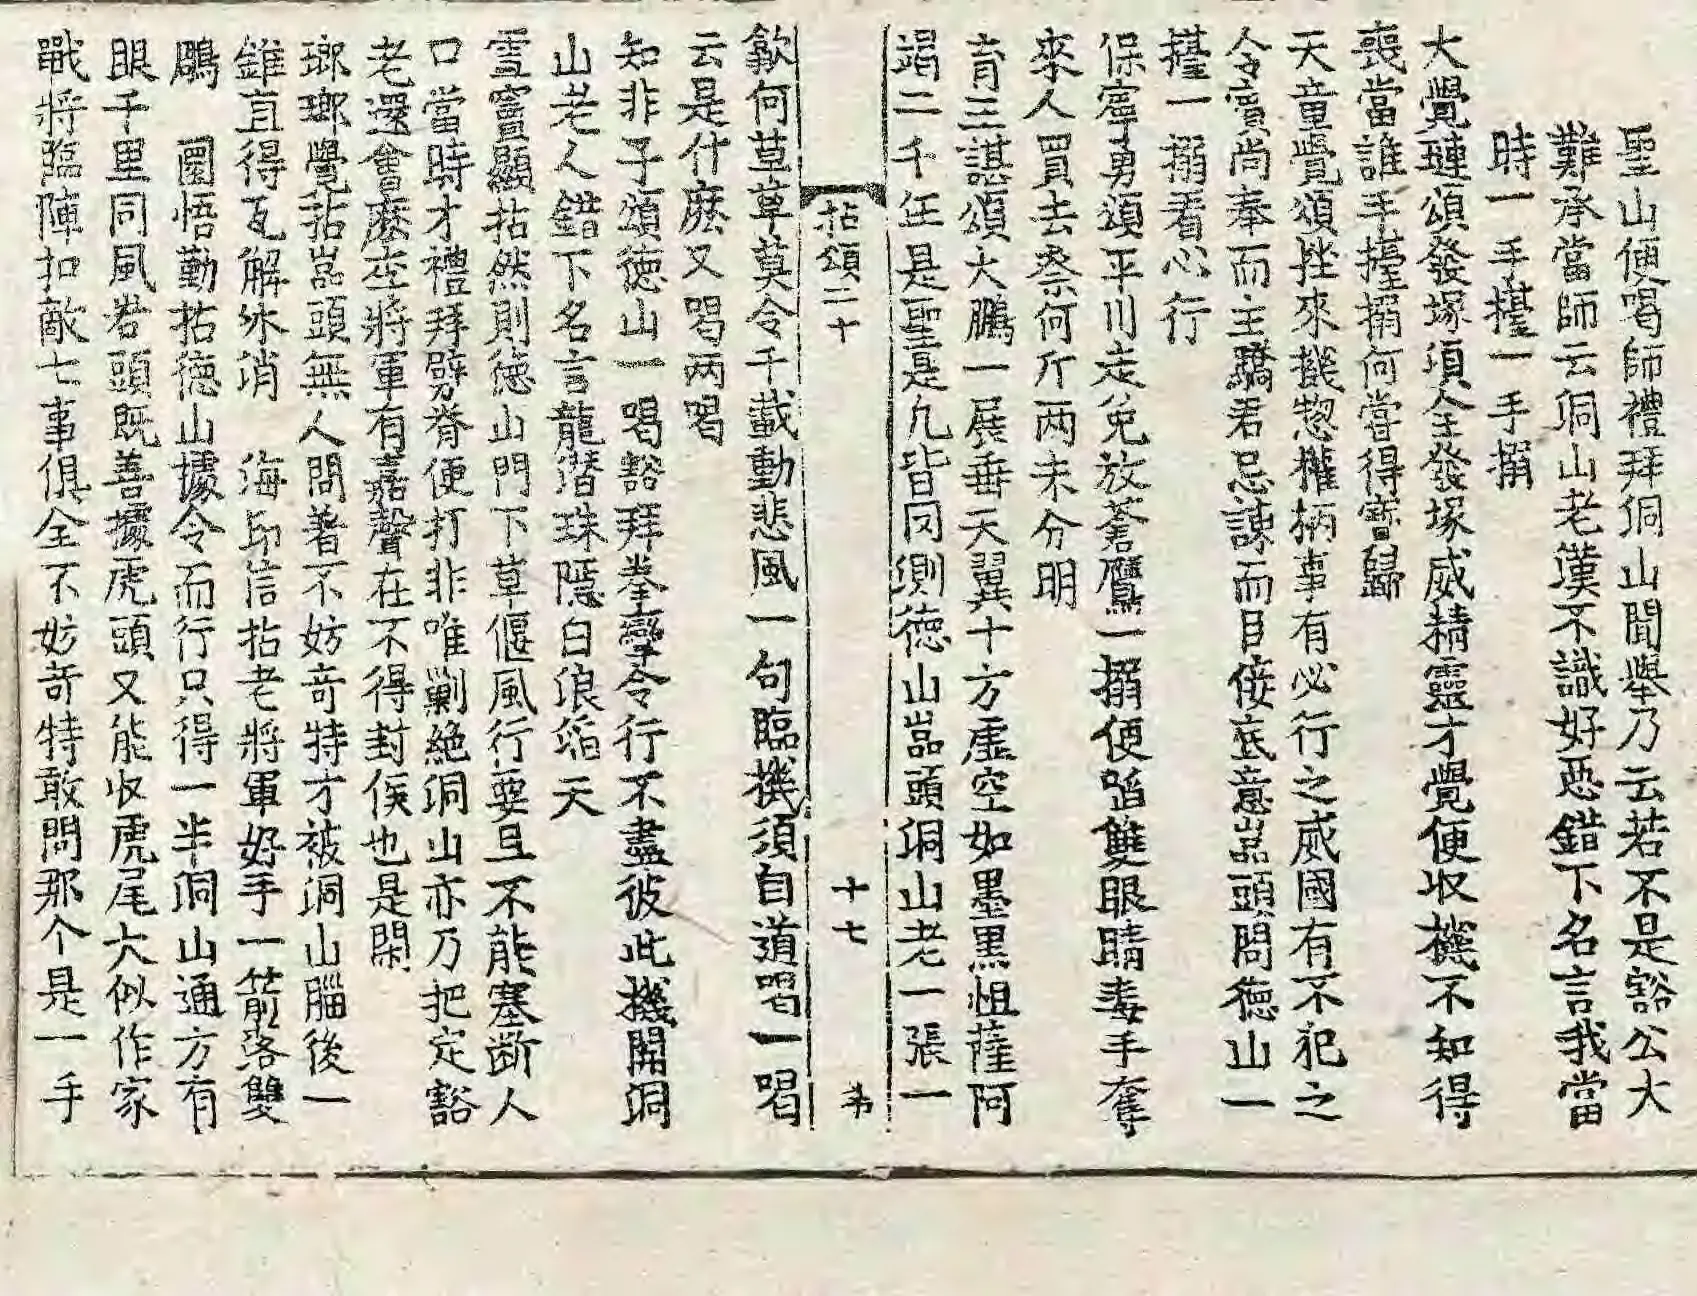 聖山便喝師禮拜洞山聞舉乃云若不是豁公大
難承當師云洞山老漢不識好惡錯下名言我當
時一手擡一手搦
大覺璉頌發塚須全發塚威精靈才覺便收機不知得
喪當誰手擡搦何嘗得寶歸
天童覺頌挫來機惣權柄事有必行之威國有不犯之
令賓尚奉而主驕君忌諫而目侫底意嵓頭問德山一
擡一搦看心行
保寧勇頌平川走兔放蒼鷹一搦便啗雙眼睛毒手奪
來人買去秤何斤两未分明
育王諶頌大鵬一展垂天翼十方虛空如墨黑怛薩阿
竭二千年是聖是凡皆罔測德山嵓頭洞山老一張一
拈頌二十
十七
歙何草草莫令千載動悲風一句臨機須自道喝一喝
云是什麽又喝两喝
知非子頌德山一喝豁拜拳攣令行不盡彼此機關洞
山老人錯下名言龍潛珠隱白浪滔天
雪竇顯拈然則德山門下草偃風行要且不能塞斷人
口當時才禮拜劈脊便打非唯勦絶洞山亦乃把定豁
老還會麽李將軍有嘉聲在不得封侯也是閑
瑯瑯覺拈嵓頭無人問著不妨竒特才被洞山腦後一
錐直得瓦解氷消 海印信拈老將軍好手一箭落雙
鵰 圜悟勤拈德山據令而行只得一半洞山通方有
眼千里同風若頭既善據虎頭又能收虎尾大似作家
戰將臨陣扣敵七事俱全不妨竒特敢問那个是一手